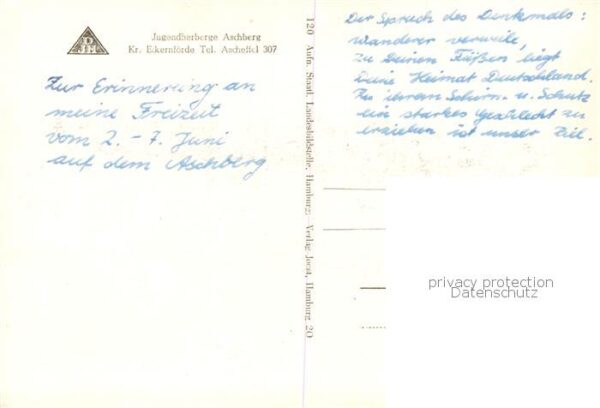 DJH
Jugendherberge Aschberg
Kr. Eckernförde Tel. Ascheffel 307
Zur Erinnerung an
meine Freizeit
vom 2. - 7. Juni
auf dem Aschberg
120 Aufn. Staatl. Landesbildstelle, Hamburg; - Verlag Joost, Hamburg 20
Der Spruch des Denkmals:
Wanderer verweile,
zu Deinen Füßen liegt
Deine Heimat Deutschland.
Zu ihrem Schirm u. Schutz
ein starkes Geschlecht zu
erziehen ist unser Ziel.
privacy protection
Datenschutz